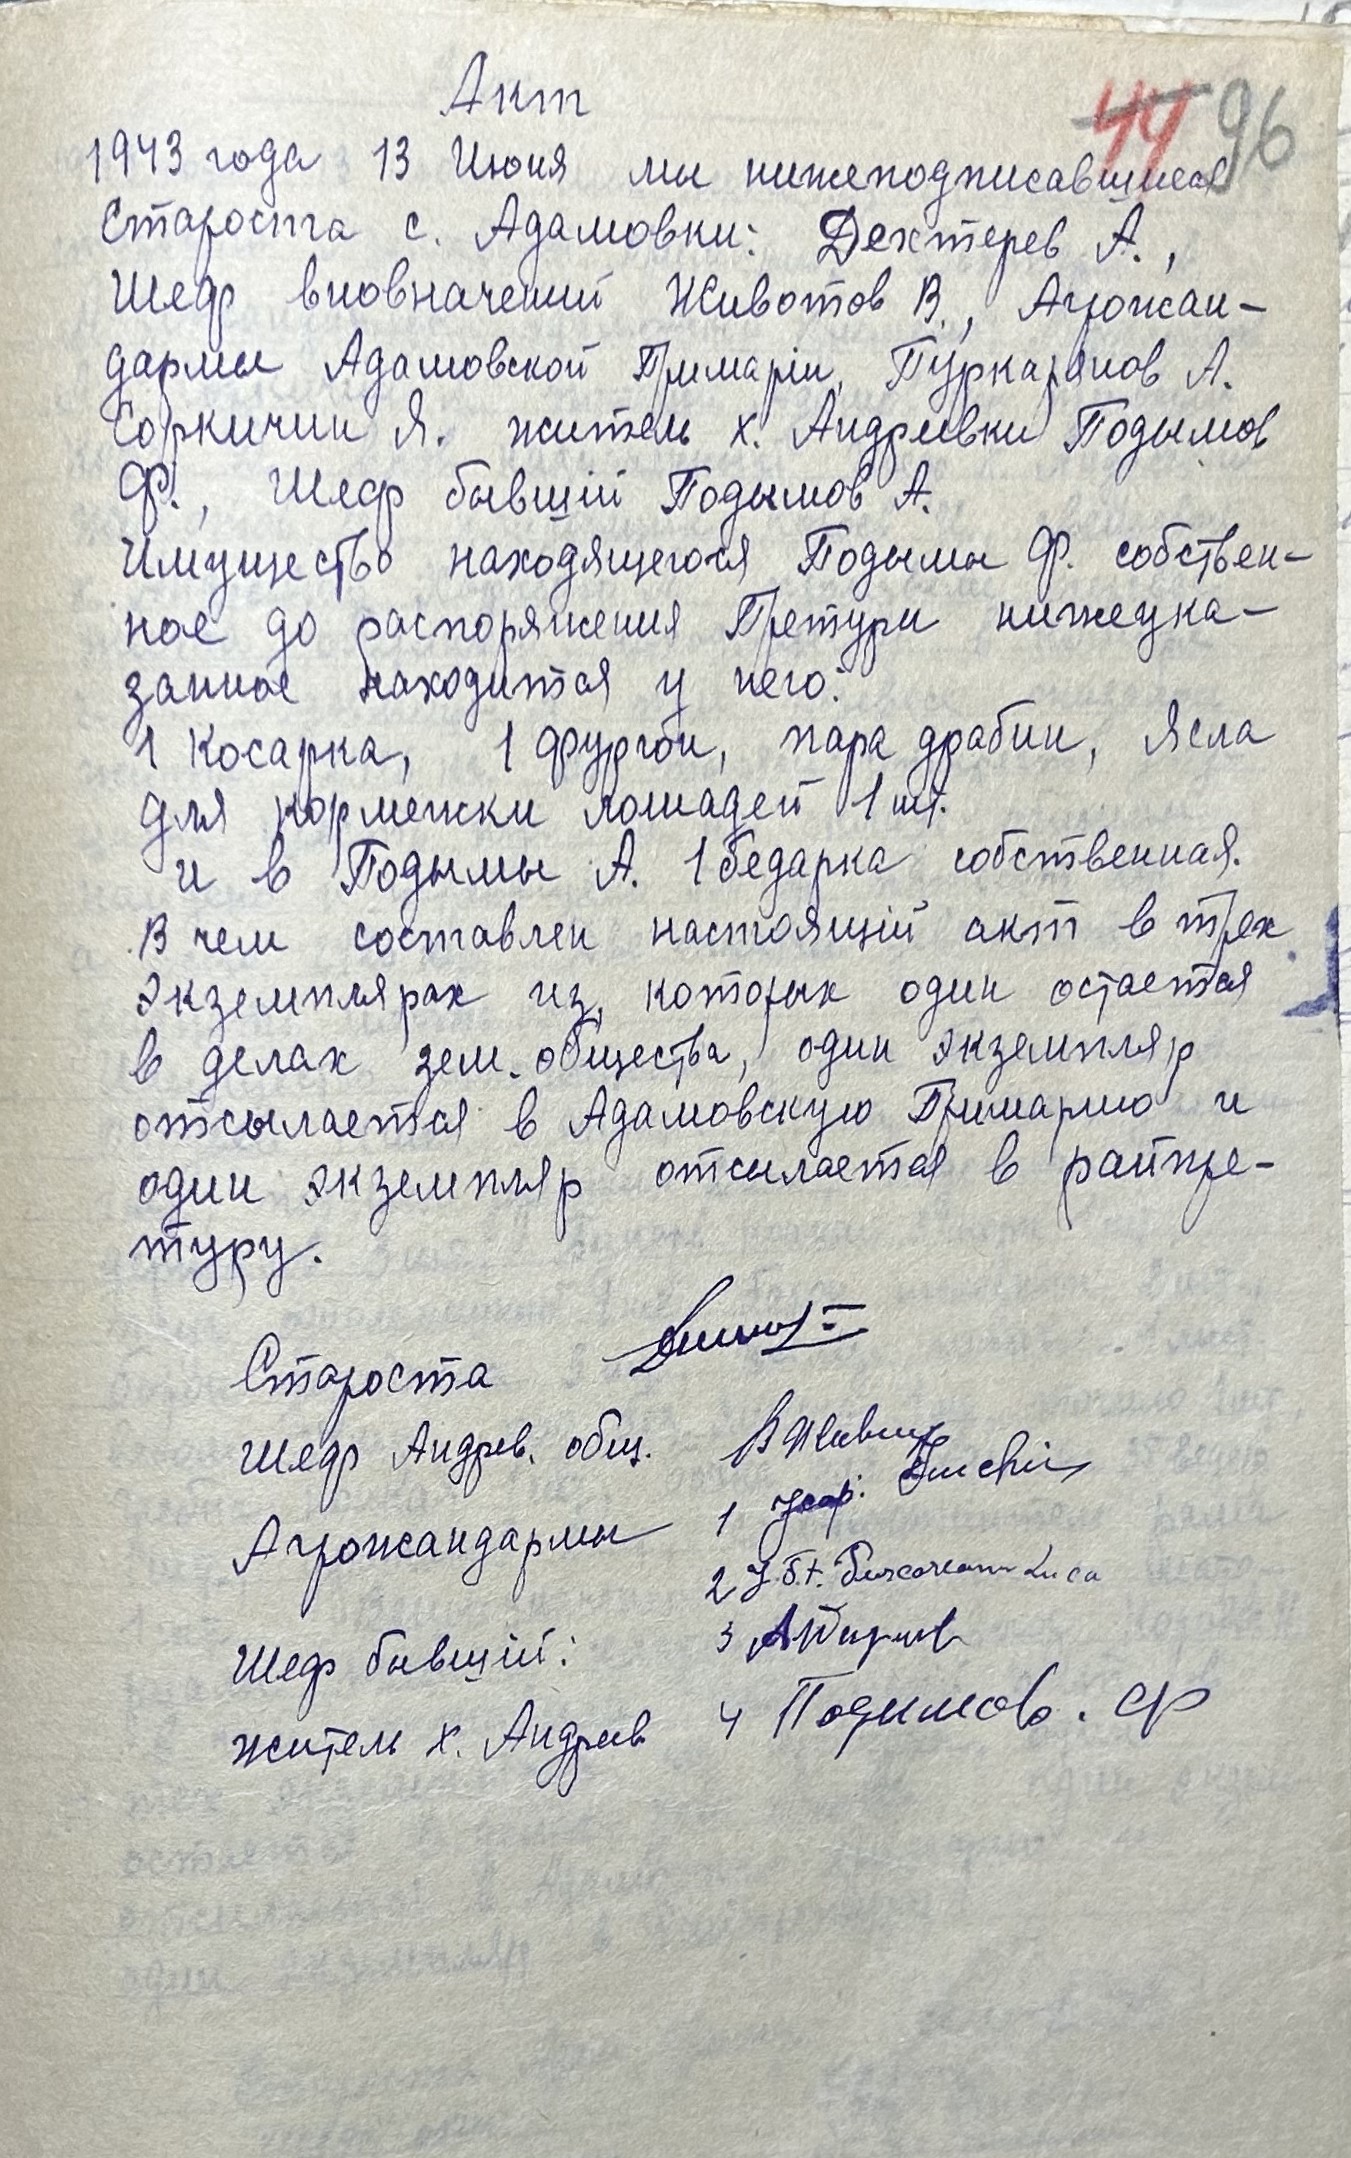 Акт
44 96
1943 года 13 Июня мы нижеподписавшиеся
Староста с. Адамовки: Дехтерев А.,
Шеф вновначений Животов В., Агрожан-
дармы Адамовской Примаріи, Пуркарянов А.
Соркичин Я. житель х. Андреевки Подымов
Ф., Шеф бывшій Подымов А.
Имущество находящегося Подымы Ф. собствен-
ное до распоряжения Претури нижеука-
занное находится у него:
1 Косарка, 1 фургон, пара драбин, Ясла
для кормежки лошадей 1 шт.
и в Подымы А. 1 бедарка собственная.
В чем составлен настоящій акт в трех
экземплярах из которых один остается
в делах зем. общества, один экземпляр
отсылается в Адамовскую Примарию и
один экземпляр отсылается в райпре-
туру.
Староста
Шеф Андрев. общ.
Агрожандармы 1
2
Шеф бывшій: 3
житель х. Андреев 4 Подимов. Ф